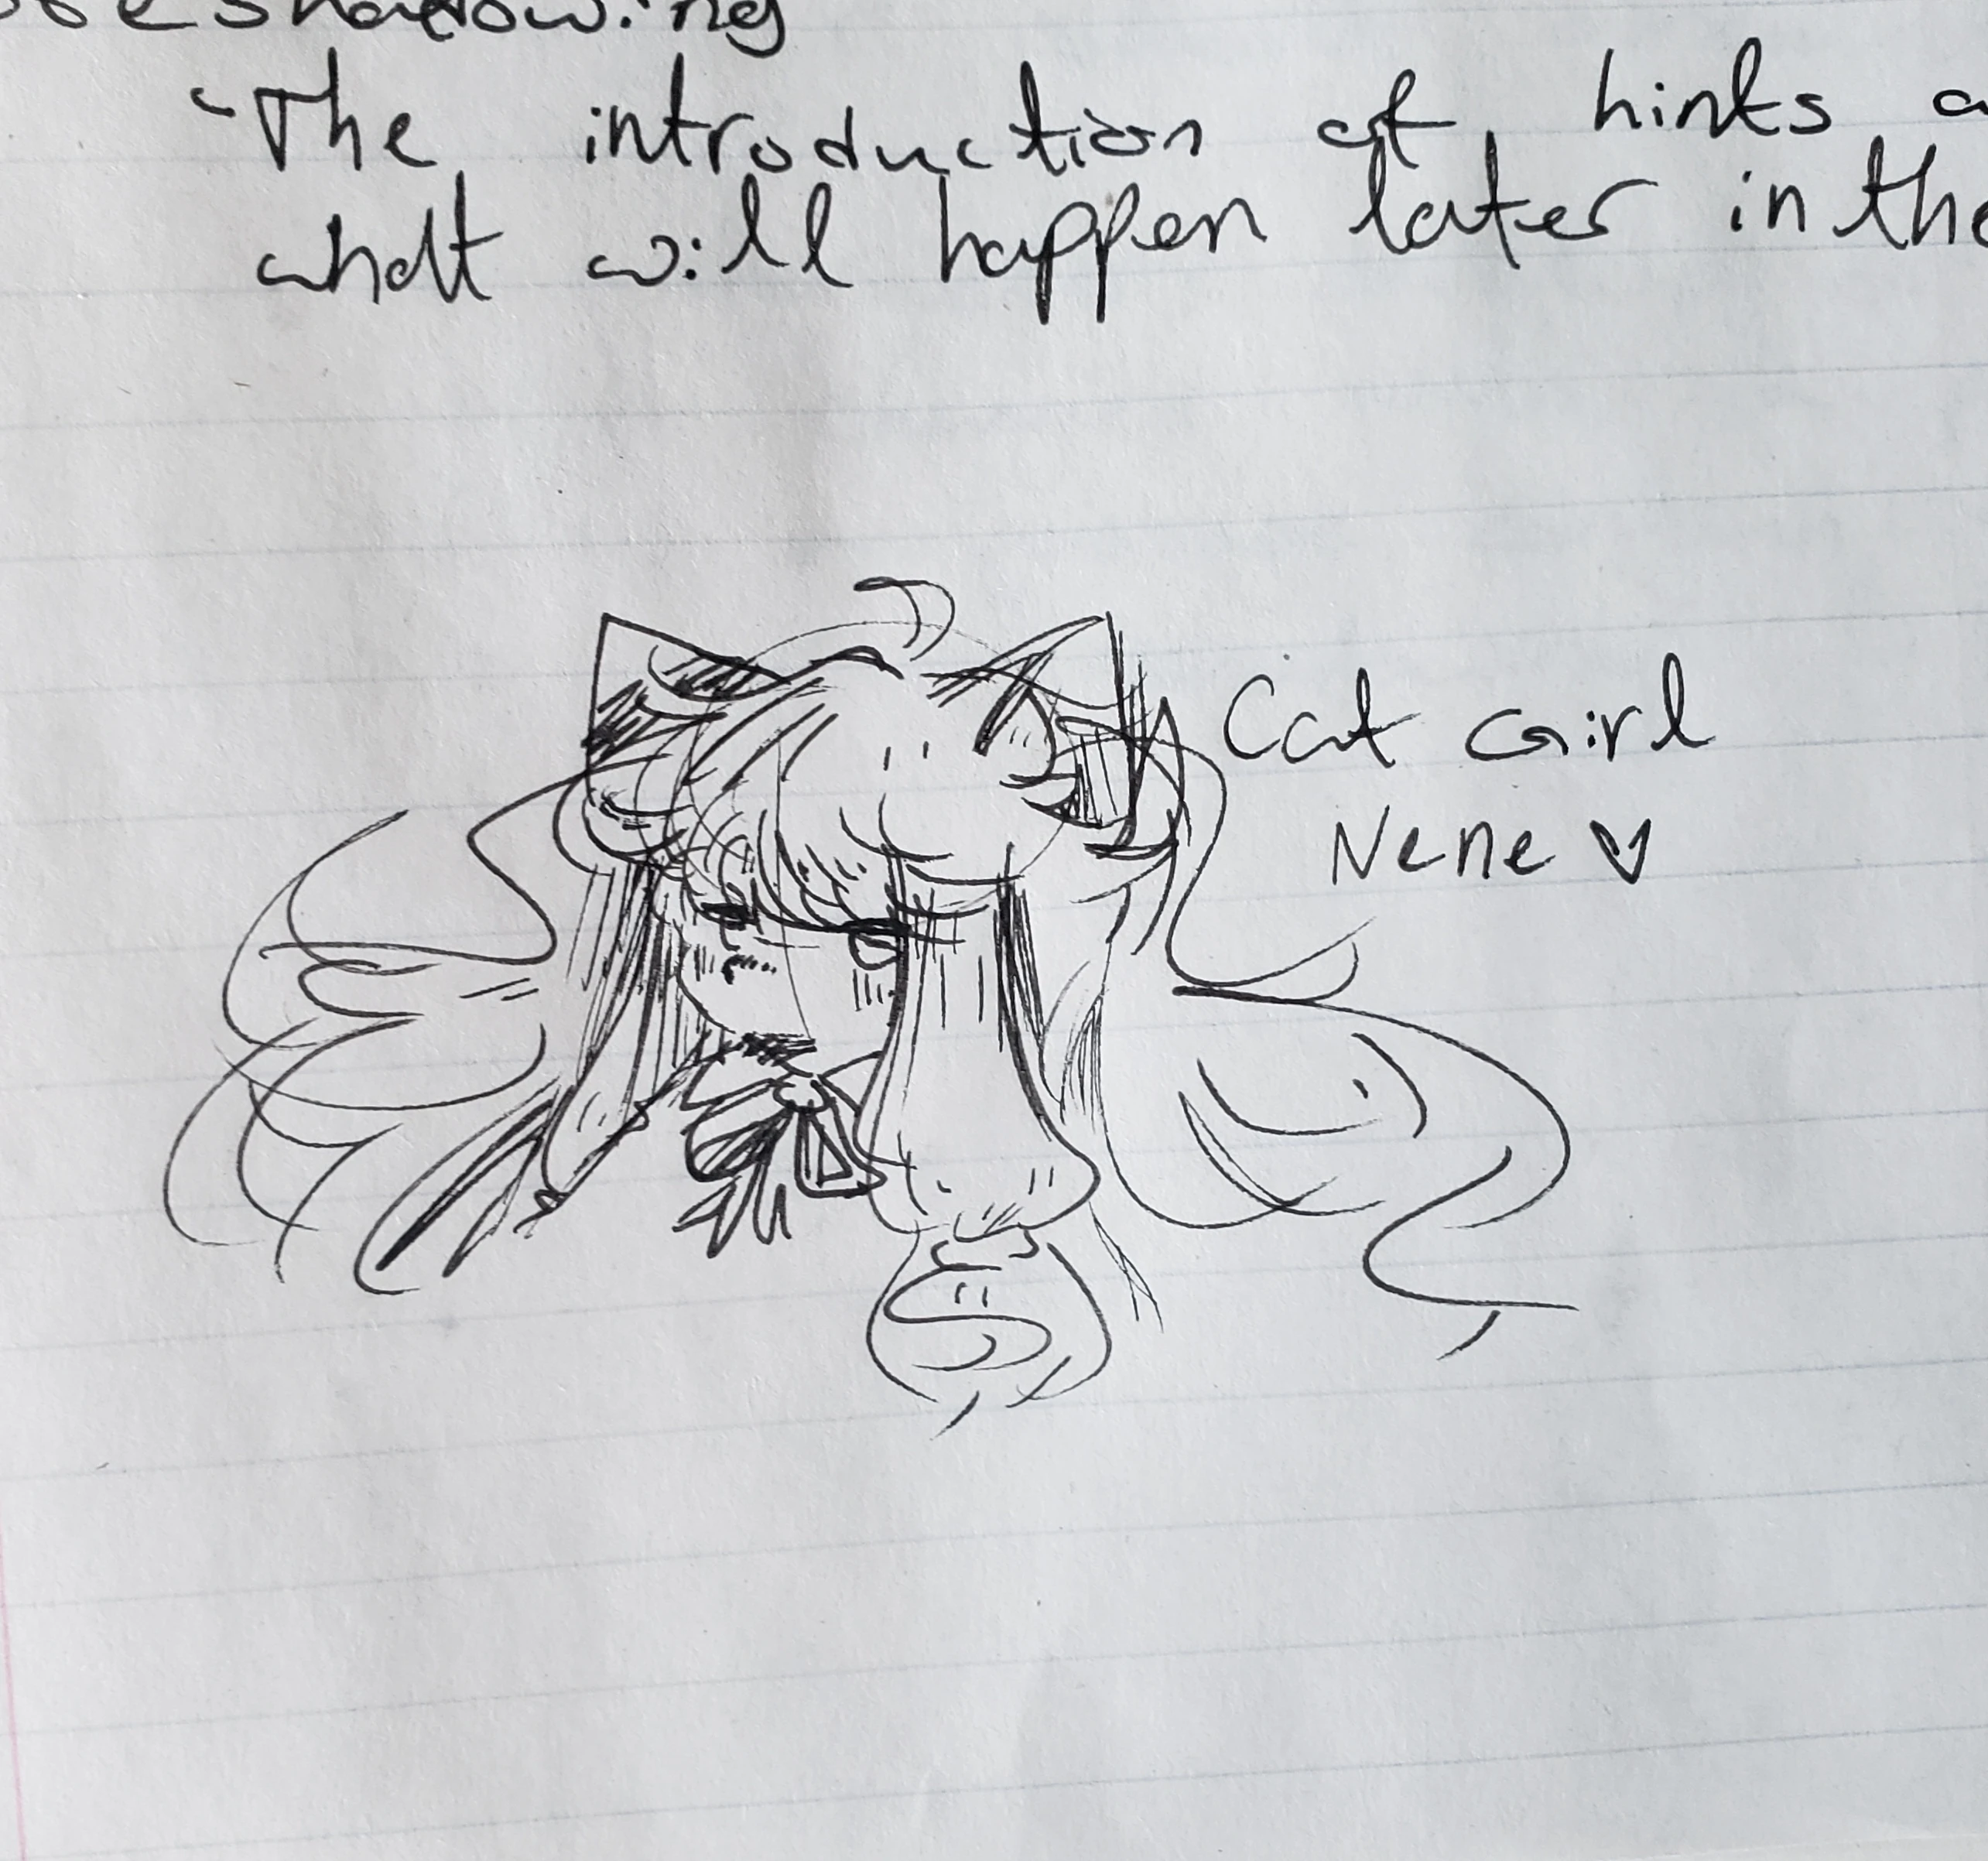 eshadowing
-The introduction of hints
what will happen later in the
Cat Girl
Nene ♡